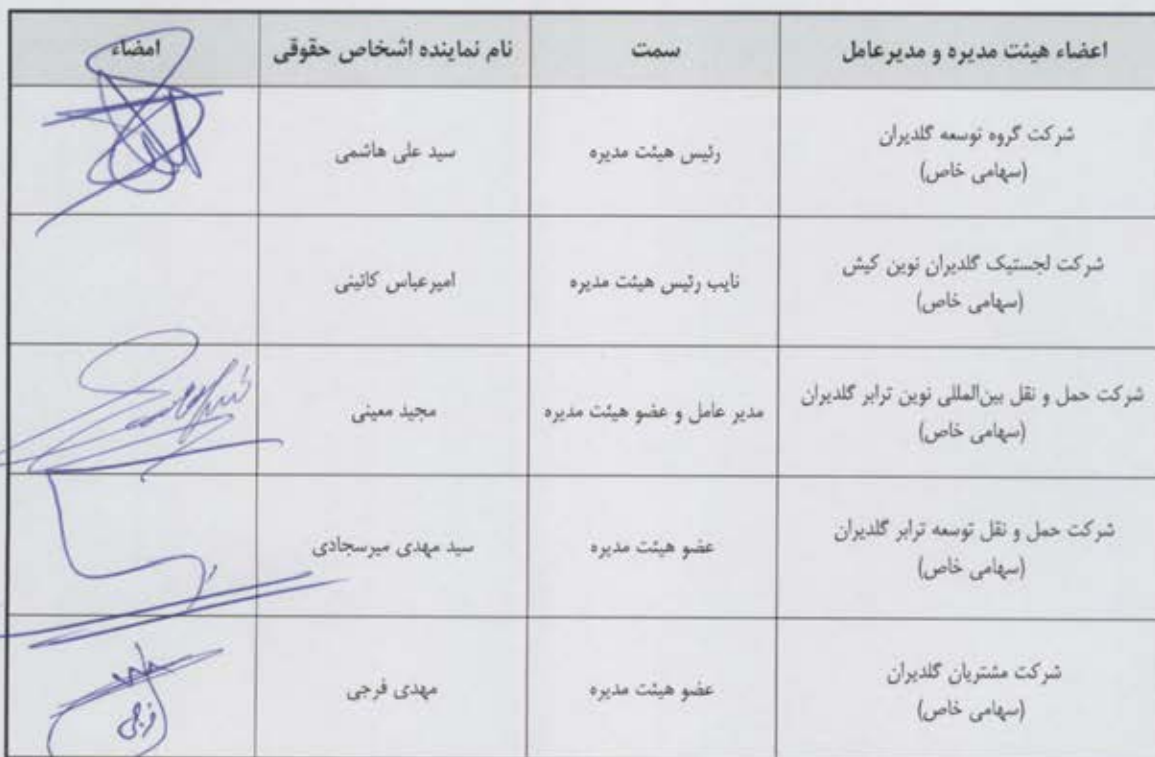 اعضاء هیئت مدیره و مدیرعامل
سمت
نام نماینده اشخاص حقوقی
امضاء
شرکت گروه توسعه گلدیران
(سهامی خاص)
رئیس هیئت مدیره
سید علی هاشمی
شرکت لجستیک گلدیران نوین کیش
(سهامی خاص)
نایب رئیس هیئت مدیره
امیرعباس کائینی
شرکت حمل و نقل بین‌المللی نوین ترابر گلدیران
(سهامی خاص)
مدیر عامل و عضو هیئت مدیره
مجید معینی
شرکت حمل و نقل توسعه ترابر گلدیران
(سهامی خاص)
عضو هیئت مدیره
سید مهدی میرسجادی
شرکت مشتریان گلدیران
(سهامی خاص)
عضو هیئت مدیره
مهدی فرجی
فرجی